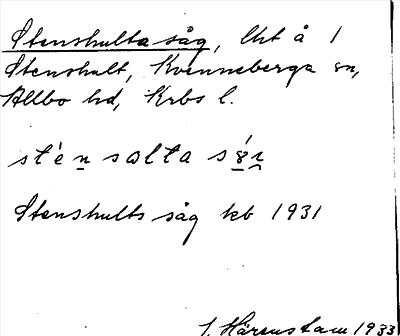 Stenshulta såg, lht å 1
Stenshult, Kvenneberga sn,
Allbo hd, Krbs l.
sté̱n sɷlta
Stenshults såg kb 1931
J. Hårenstam 1933